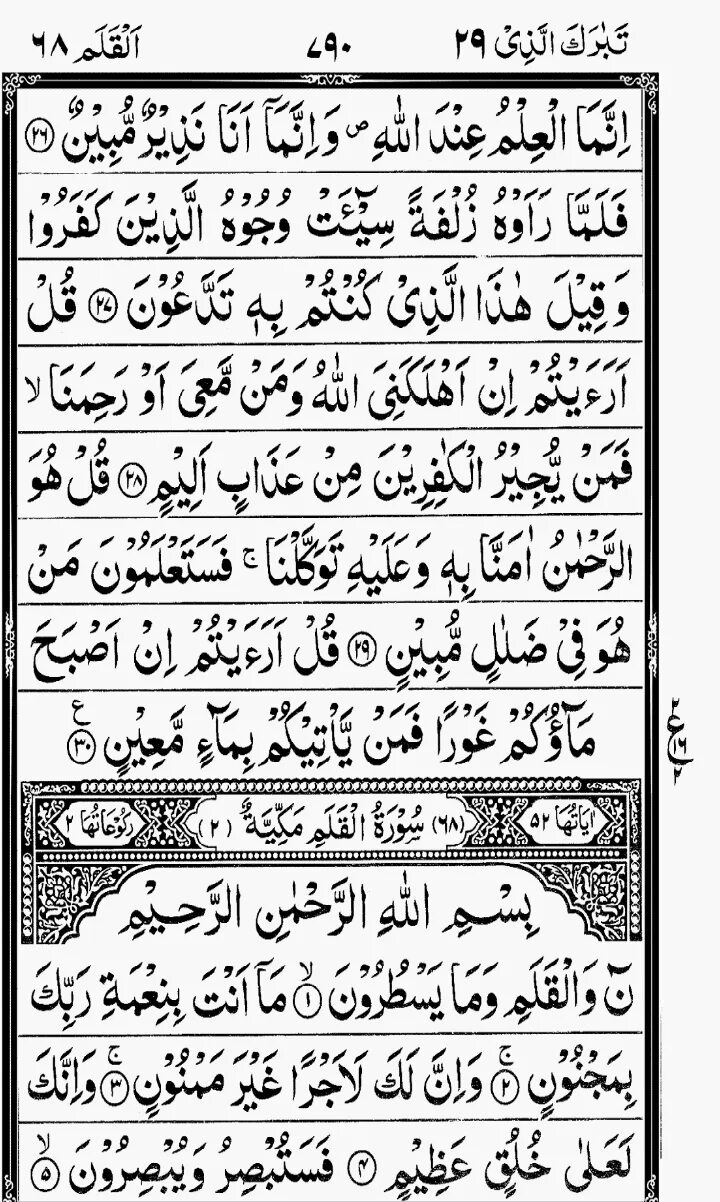 تَبٰرَكَ الَّذِیْ ۲۹ ۷۹۰ اَلْقَلَم ۶۸
اِنَّمَا الْعِلْمُ عِنْدَ اللّٰهِ ۪ وَاِنَّمَاۤ اَنَا نَذِیْرٌ مُّبِیْنٌ ﴿۲۶﴾
فَلَمَّا رَاَوْهُ زُلْفَةً سِیْٓـَٔتْ وُجُوْهُ الَّذِیْنَ كَفَرُوْا
وَقِیْلَ هٰذَا الَّذِیْ كُنْتُمْ بِهٖ تَدَّعُوْنَ ﴿۲۷﴾ قُلْ
اَرَءَیْتُمْ اِنْ اَهْلَكَنِیَ اللّٰهُ وَمَنْ مَّعِیَ اَوْ رَحِمَنَا ۙ
فَمَنْ یُّجِیْرُ الْكٰفِرِیْنَ مِنْ عَذَابٍ اَلِیْمٍ ﴿۲۸﴾ قُلْ هُوَ
الرَّحْمٰنُ اٰمَنَّا بِهٖ وَعَلَیْهِ تَوَكَّلْنَا ۚ فَسَتَعْلَمُوْنَ مَنْ
هُوَ فِیْ ضَلٰلٍ مُّبِیْنٍ ﴿۲۹﴾ قُلْ اَرَءَیْتُمْ اِنْ اَصْبَحَ
مَآؤُكُمْ غَوْرًا فَمَنْ یَّاْتِیْكُمْ بِمَآءٍ مَّعِیْنٍ ﴿۳۰﴾ ع
۲ ع ۱۶ ۲
اٰیَاتُهَا ۵۲ (۶۸) سُوْرَةُ الْقَلَمِ مَكِّیَّةٌ (۲) رُكُوْعَاتُهَا ۲
بِسْمِ اللّٰهِ الرَّحْمٰنِ الرَّحِیْمِ
نٓ وَالْقَلَمِ وَمَا یَسْطُرُوْنَ ﴿۱﴾ ۙ مَاۤ اَنْتَ بِنِعْمَةِ رَبِّكَ
بِمَجْنُوْنٍ ﴿۲﴾ ۚ وَاِنَّ لَكَ لَاَجْرًا غَیْرَ مَمْنُوْنٍ ﴿۳﴾ ۚ وَاِنَّكَ
لَعَلٰی خُلُقٍ عَظِیْمٍ ﴿۴﴾ فَسَتُبْصِرُ وَیُبْصِرُوْنَ ﴿۵﴾ ۙ